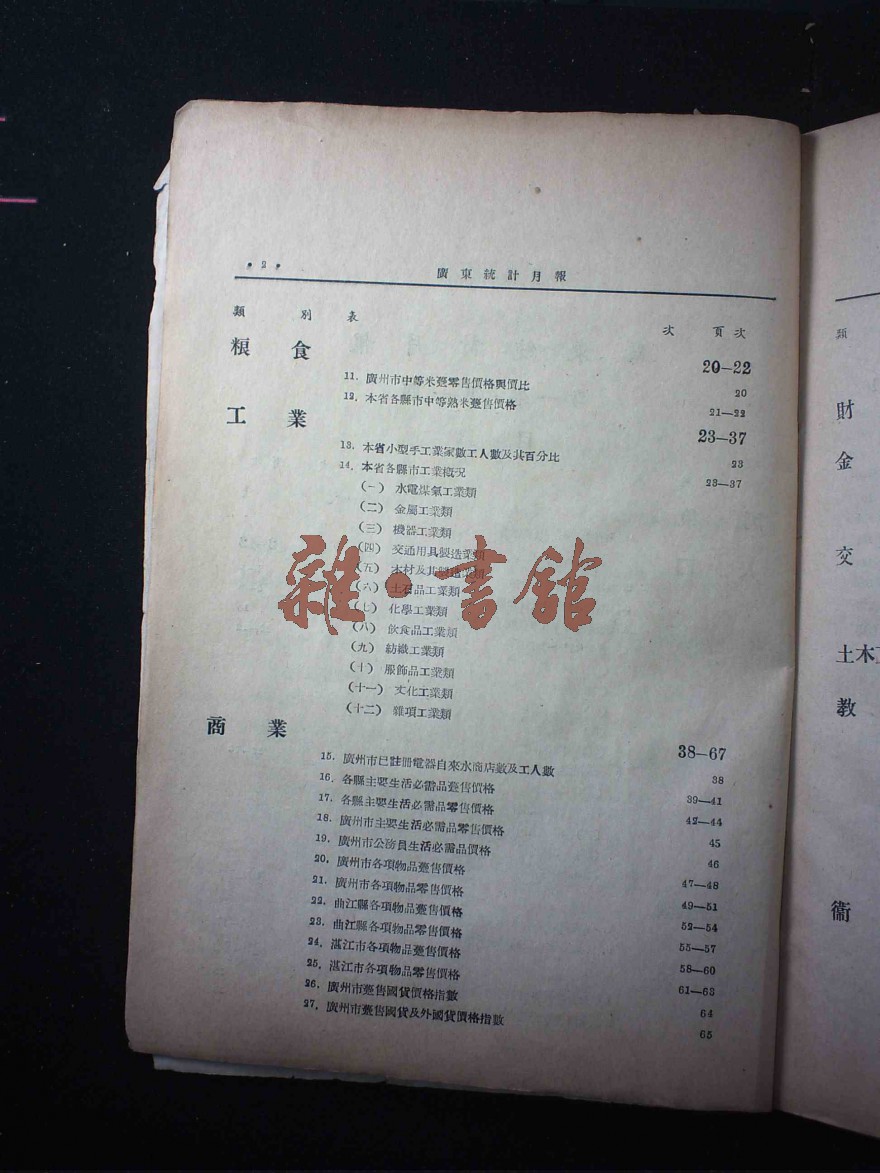 • 2 •
廣東統計月報
類 別 表 次 頁次
粮食 20—22
11. 廣州市中等米躉零售價格與價比 20
12. 本省各縣市中等熟米躉售價格 21—22
工業 23—37
13. 本省小型手工業家數工人數及其百分比 23
14. 本省各縣市工業概況 23—37
(一) 水電煤氣工業類
(二) 金屬工業類
(三) 機器工業類
(四) 交通用具製造業類
(五) 木材及其製造業類
(六) 土石品工業類
(七) 化學工業類
(八) 飲食品工業類
(九) 紡織工業類
(十) 服飾品工業類
(十一) 文化工業類
(十二) 雜項工業類
商業 38—67
15. 廣州市已註冊電器自來水商店數及工人數 38
16. 各縣主要生活必需品躉售價格 39—41
17. 各縣主要生活必需品零售價格 42—44
18. 廣州市主要生活必需品零售價格 45
19. 廣州市公務員生活必需品價格 46
20. 廣州市各項物品躉售價格 47—48
21. 廣州市各項物品零售價格 49—51
22. 曲江縣各項物品躉售價格 52—54
23. 曲江縣各項物品零售價格 55—57
24. 湛江市各項物品躉售價格 58—60
25. 湛江市各項物品零售價格 61—63
26. 廣州市躉售國貨價格指數 64
27. 廣州市躉售國貨及外國貨價格指數 65
雜·書館
類
財
金
交
土木
教
衞